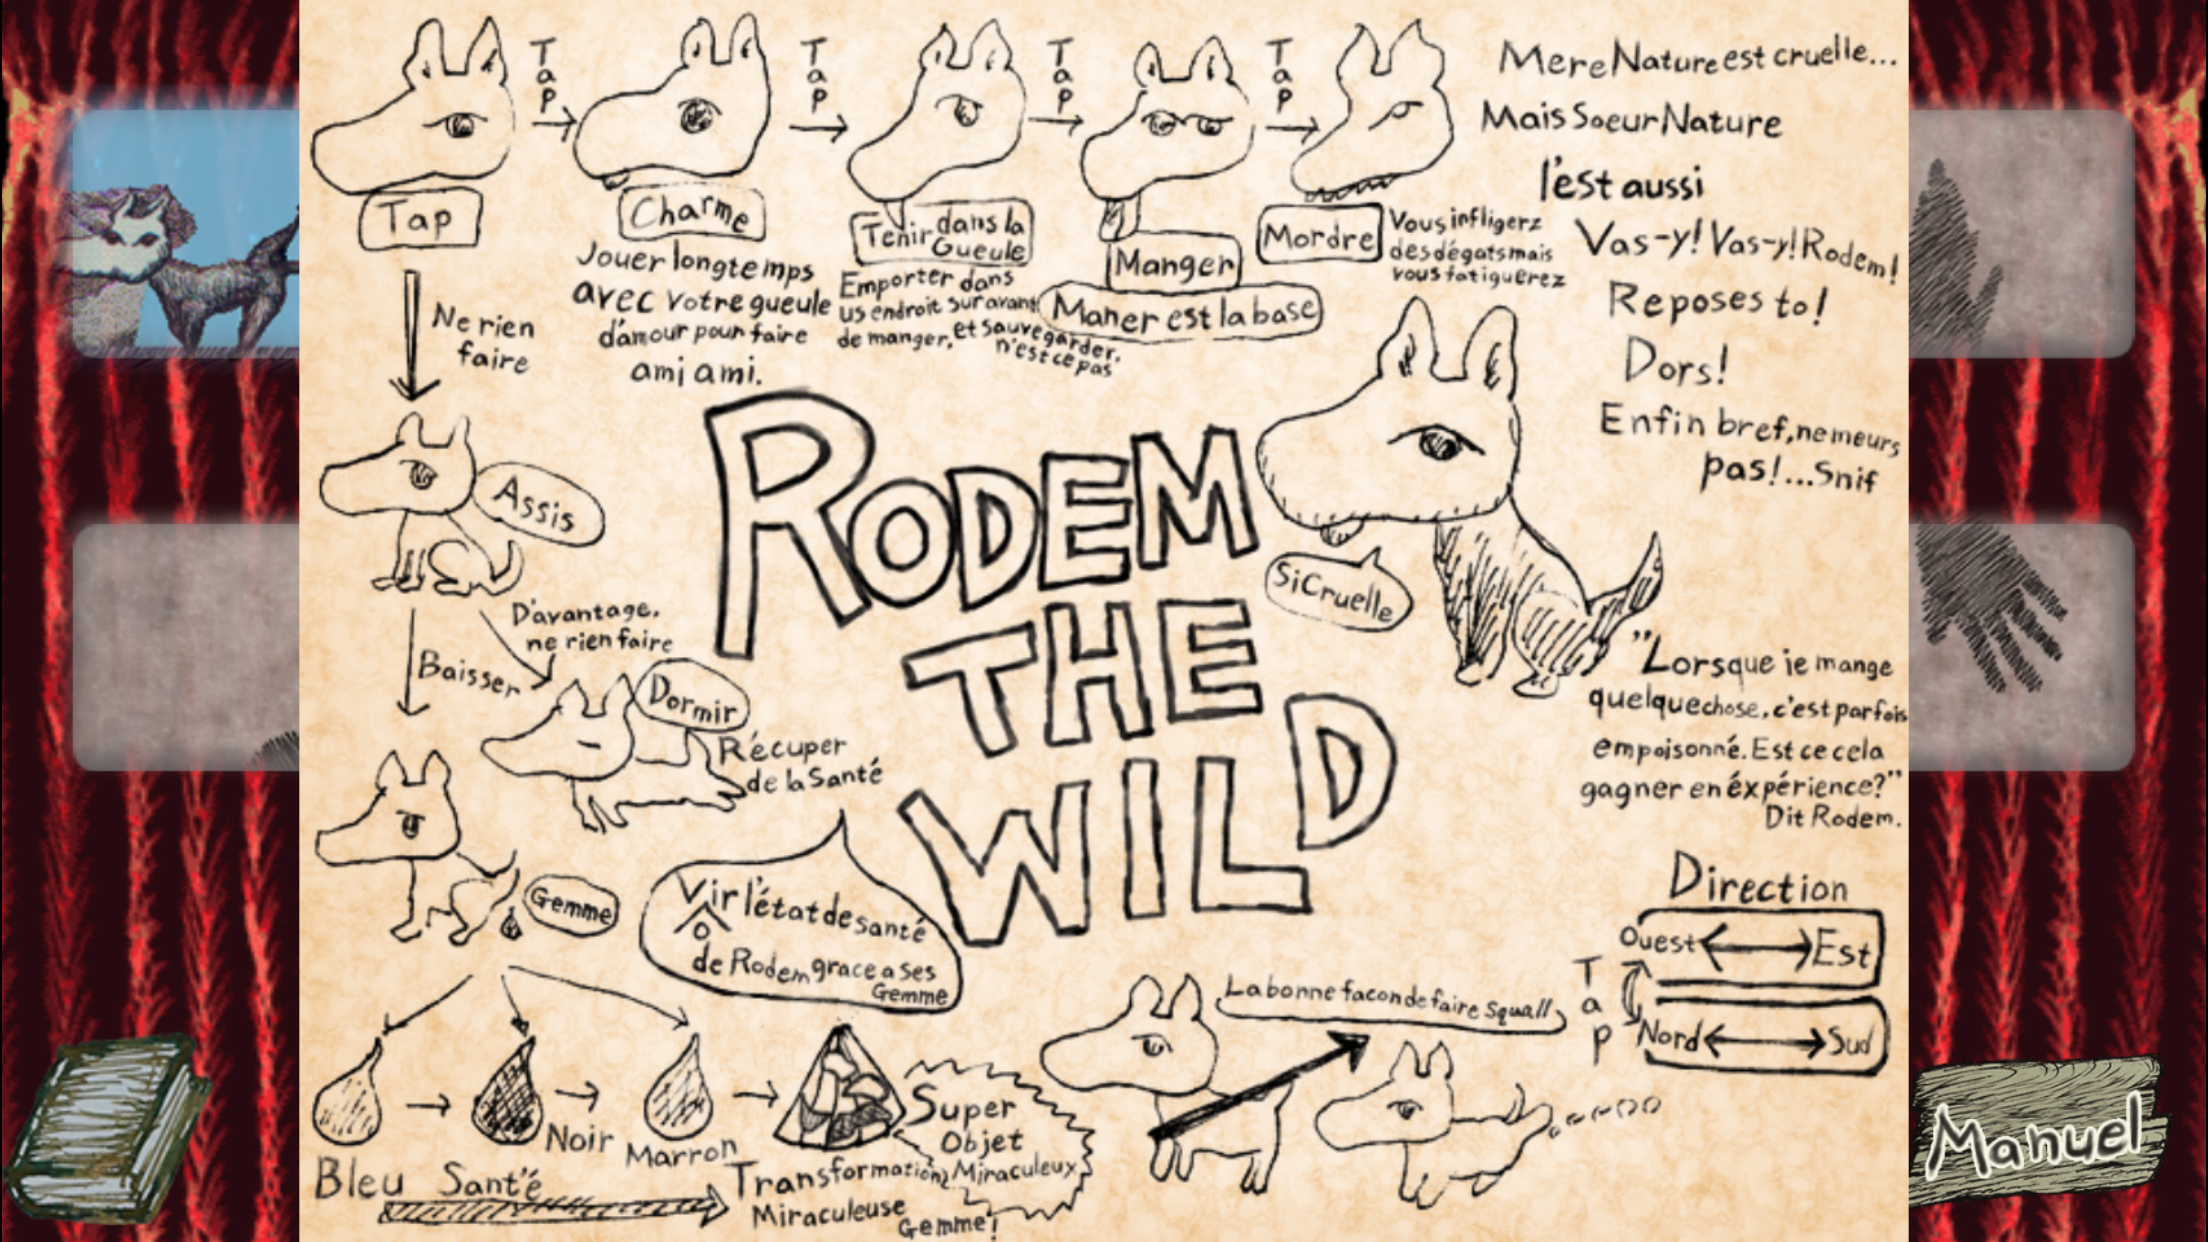 Tap
Tap
Tap
Tap
Tap
Charme
Jouer longtemps
avec votre gueule
d'amour pour faire
ami ami.
Tenir dans la
Gueule
Emporter dans
us endroit sur avant
de manger, et sauvegarder,
n'est ce pas
Manger
Maner est la base
Mordre
Vous infligerz
des dégats mais
vous fatiguerez
Mere Nature est cruelle...
Mais Soeur Nature
l'est aussi
Vas-y! Vas-y! Rodem!
Reposes to!
Dors!
Enfin bref, ne meurs
pas!...Snif
Ne rien
faire
Assis
RODEM
THE
WILD
Si Cruelle
D'avantage,
ne rien faire
Baisser
Dormir
Récuper
de la Santé
"Lorsque je mange
quelque chose, c'est parfois
empoisonné. Est ce cela
gagner en éxpérience?"
Dit Rodem.
Gemme
Vir l'état de santé
o
de Rodem grace a ses
Gemme
Direction
Ouest Est
Tap
Nord Sud
La bonne facon de faire Squall
Bleu
Santé
Noir
Marron
Transformation
Miraculeuse
Gemme!
Super
Objet
Miraculeux
Manuel